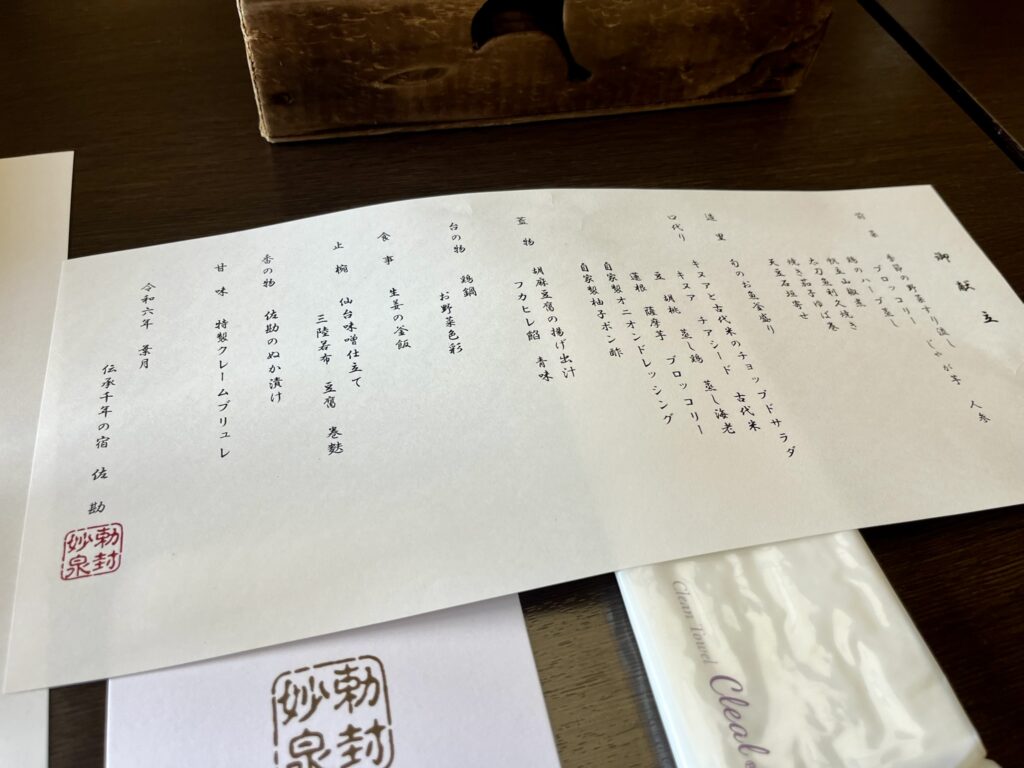 御献立
前菜
季節の野菜すり流し じゃが芋 人参
ブロッコリー
鶏のハーブ蒸し
帆立山椒煮
太刀魚利久焼き
焼き茄子ゆば巻
天豆石垣寄せ
造里 旬のお魚盛り
口代り キヌアと古代米のチョップドサラダ
キヌア チアシード 古代米
豆 胡桃 蒸し鶏 蒸し海老
蓮根 薩摩芋 ブロッコリー
自家製オニオンドレッシング
自家製柚子ポン酢
蓋物 胡麻豆腐の揚げ出汁
フカヒレ餡 青味
台の物 鶏鍋
お野菜色彩
食事 生姜の釜飯
止椀 仙台味噌仕立て
三陸若布 豆腐 巻麩
香の物 佐勘のぬか漬け
甘味 特製クレームブリュレ
令和六年 葉月
伝承千年の宿 佐勘
勅封
妙泉
勅封
妙泉
Clean Towel
Cleal